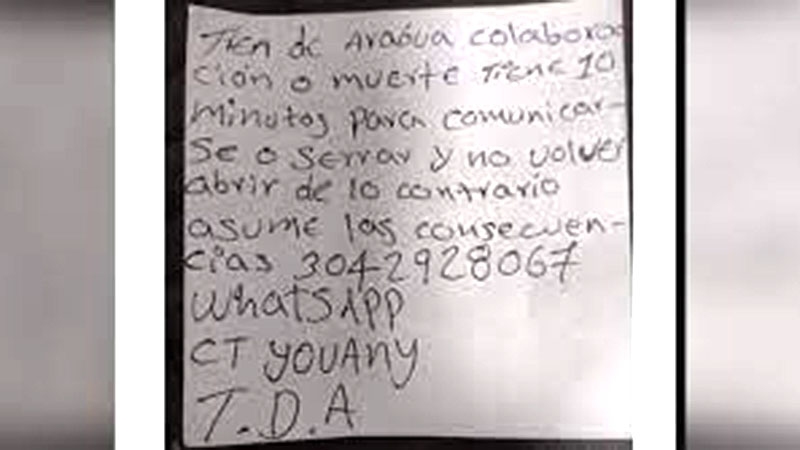 Tren de Aragua colabora
ción o muerte Tiene 10
minutos para comunicar-
se o serrar y no volver
abrir de lo contrario
asume las consecuen-
cias 3042928067
WhatsAPP
CT YOUANY
T.D.A